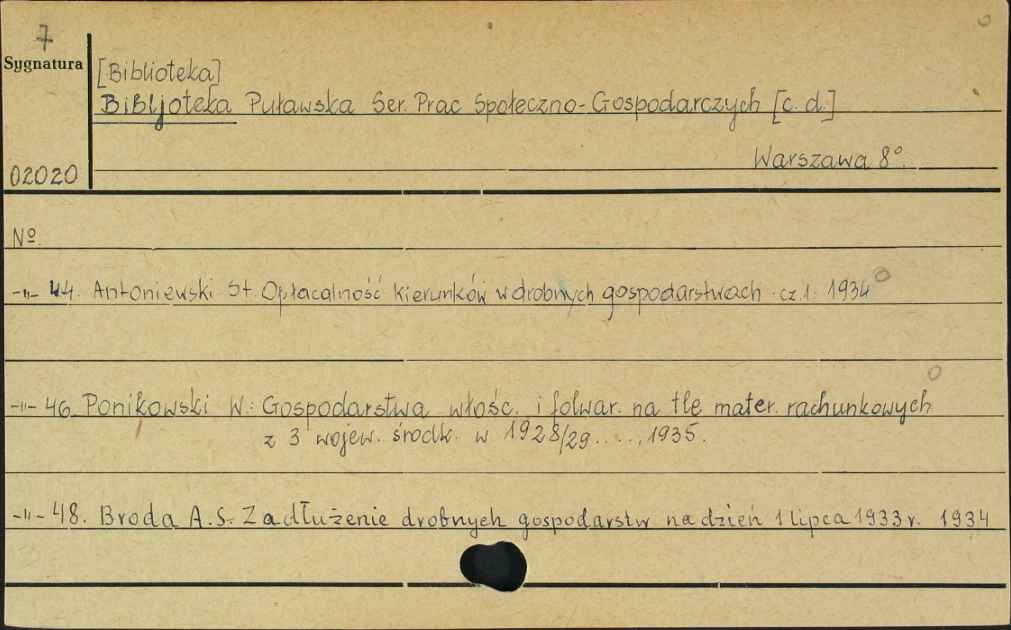 7
Sygnatura
[Biblioteka]
Bibljoteka Puławska Ser. Prac Społeczno-Gospodarczych [c. d.]
Warszawa 8°.
02020
Nº
-"- 44. Antoniewski St. Opłacalność kierunków w drobnych gospodarstwach cz. 1. 1934
-"- 46. Ponikowski W.: Gospodarstwa włośc. i folwar. na tle mater. rachunkowych
z 3 wojew. środk. w 1928/29....., 1935.
-"- 48. Broda A. S. Zadłużenie drobnych gospodarstw na dzień 1 lipca 1933 r. 1934